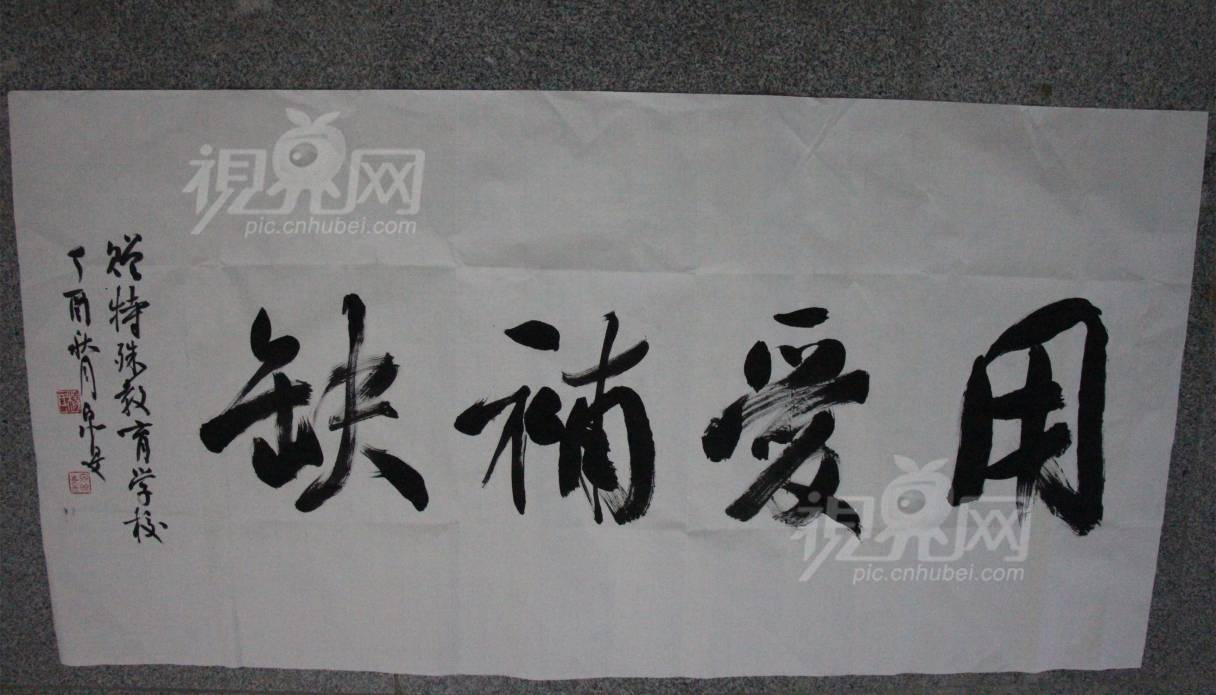 用爱补缺
赠特殊教育学校
丁酉秋月
視界网
pic.cnhubei.com
視界网
pic.cnhubei.com